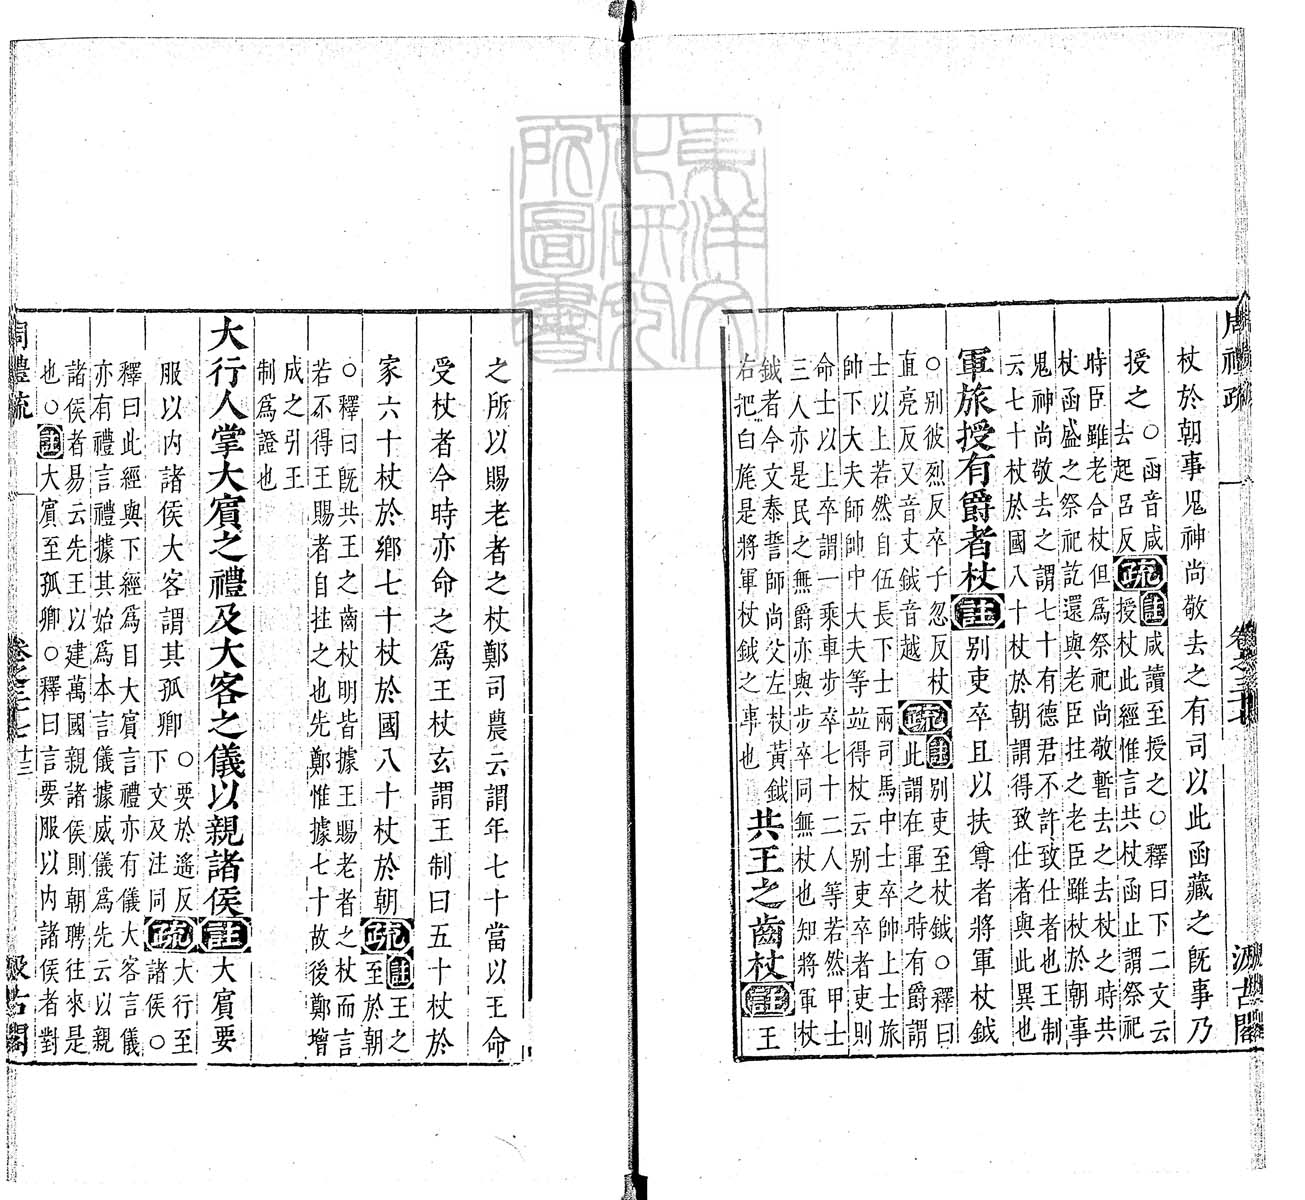 周禮疏
卷之三十七
汲古閣
杖於朝事鬼神尚敬去之有司以此函藏之旣事乃
授之○函音咸去起呂反疏註咸讀至授之○釋曰下二文云授杖此經惟言共杖函止謂祭祀
時臣雖老合杖但爲祭祀尚敬暫去之去杖之時共杖函盛之祭祀訖還與老臣拄之老臣雖杖於朝事
鬼神尚敬去之謂七十有德君不許致仕者也王制云七十杖於國八十杖於朝謂得致仕者與此異也
軍旅授有爵者杖註別吏卒且以扶尊者將軍杖鉞
○別彼烈反卒子忽反杖直亮反又音丈鉞音越疏註別吏至杖鉞○釋曰此謂在軍之時有爵謂
士以上若然自伍長下士兩司馬中士卒帥上士旅帥下大夫師帥中大夫等並得杖云別吏卒者吏則
命士以上卒謂一乘車步卒七十二人等若然甲士三人亦是民之無爵亦與步卒同無杖也知將軍杖
鉞者今文泰誓師尚父左杖黃鉞右把白旄是將軍杖鉞之事也共王之齒杖註王
之所以賜老者之杖鄭司農云謂年七十當以王命
受杖者今時亦命之爲王杖玄謂王制曰五十杖於
家六十杖於鄉七十杖於國八十杖於朝疏註王之至於朝
○釋曰旣共王之齒杖明皆據王賜老者之杖而言若不得王賜者自拄之也先鄭惟據七十故後鄭增
成之引王制爲證也
大行人掌大賓之禮及大客之儀以親諸侯註大賓要
服以內諸侯大客謂其孤卿○要於遙反下文及注同疏大行至諸侯○
釋曰此經與下經爲目大賓言禮亦有儀大客言儀亦有禮言禮據其始爲本言儀據威儀爲先云以親
諸侯者易云先王以建萬國親諸侯則朝聘往來是也○註大賓至孤卿○釋曰言要服以內諸侯者對
周禮疏
卷之三十七
十三
汲古閣